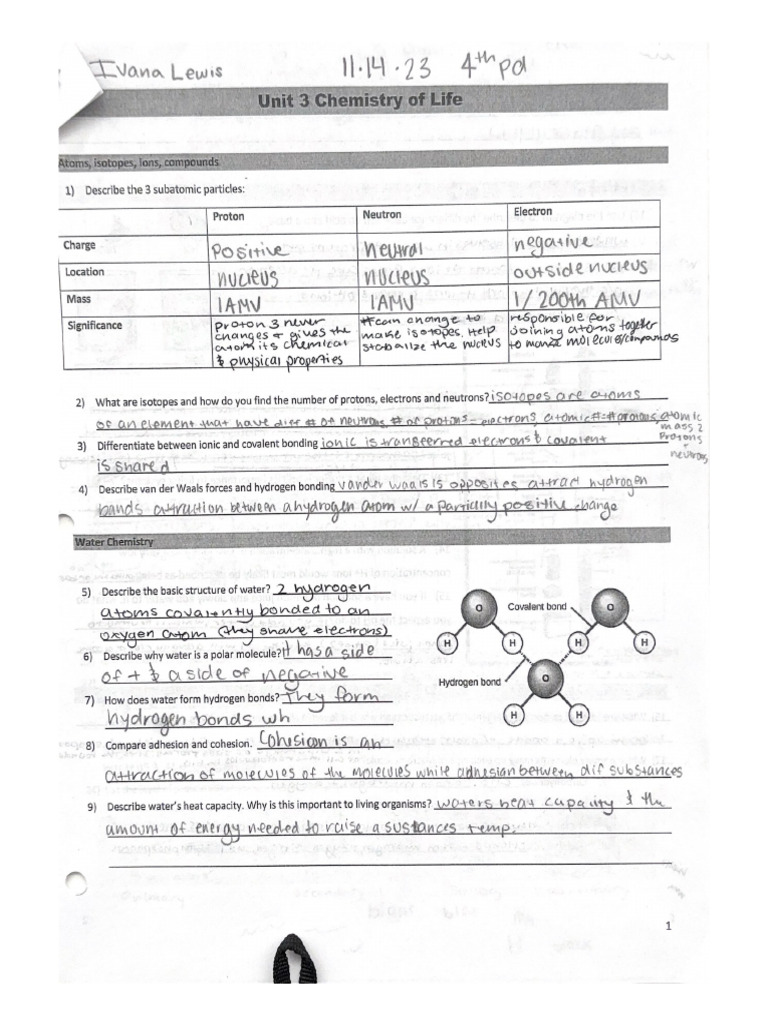 Ivana Lewis 11.14.23 4th pd
Unit 3 Chemistry of Life
Atoms, isotopes, Ions, compounds
1) Describe the 3 subatomic particles:
Proton Neutron Electron
Charge Positive neutral negative
Location nucleus nucleus outside nucleus
Mass 1 AMU 1 AMU 1/200th AMU
Significance
proton 3 never changes & gives the atom its chemical & physical properties
#can change to make isotopes. Help stabalize the nucleus
responsible for joining atoms together to make molecules/compounds
2) What are isotopes and how do you find the number of protons, electrons and neutrons? isotopes are atoms
of an element that have diff # of neutrons # of protons = electrons, atomic # = # protons, atomic
mass 2
protons
neutrons
3) Differentiate between ionic and covalent bonding ionic is transeerred electrons & covalent
is shared
4) Describe van der Waals forces and hydrogen bonding vander waals is opposites attract hydrogen
bands attraction between a hydrogen atom w/ a particlly positive charge
Water Chemistry
5) Describe the basic structure of water? 2 hydrogen
atoms covalently bonded to an
oxygen atom (they share electrons)
6) Describe why water is a polar molecule? It has a side
of + & a side of negative
7) How does water form hydrogen bonds? They form
hydrogen bonds wh
8) Compare adhesion and cohesion. Cohesion is an
attraction of molecules of the molecules while adhesian between dif substances
9) Describe water's heat capacity. Why is this important to living organisms? waters heat capacity & the
amount of energy needed to raise a sustances temp.
O Covalent bond O
H H H H
Hydrogen bond O
H H
1